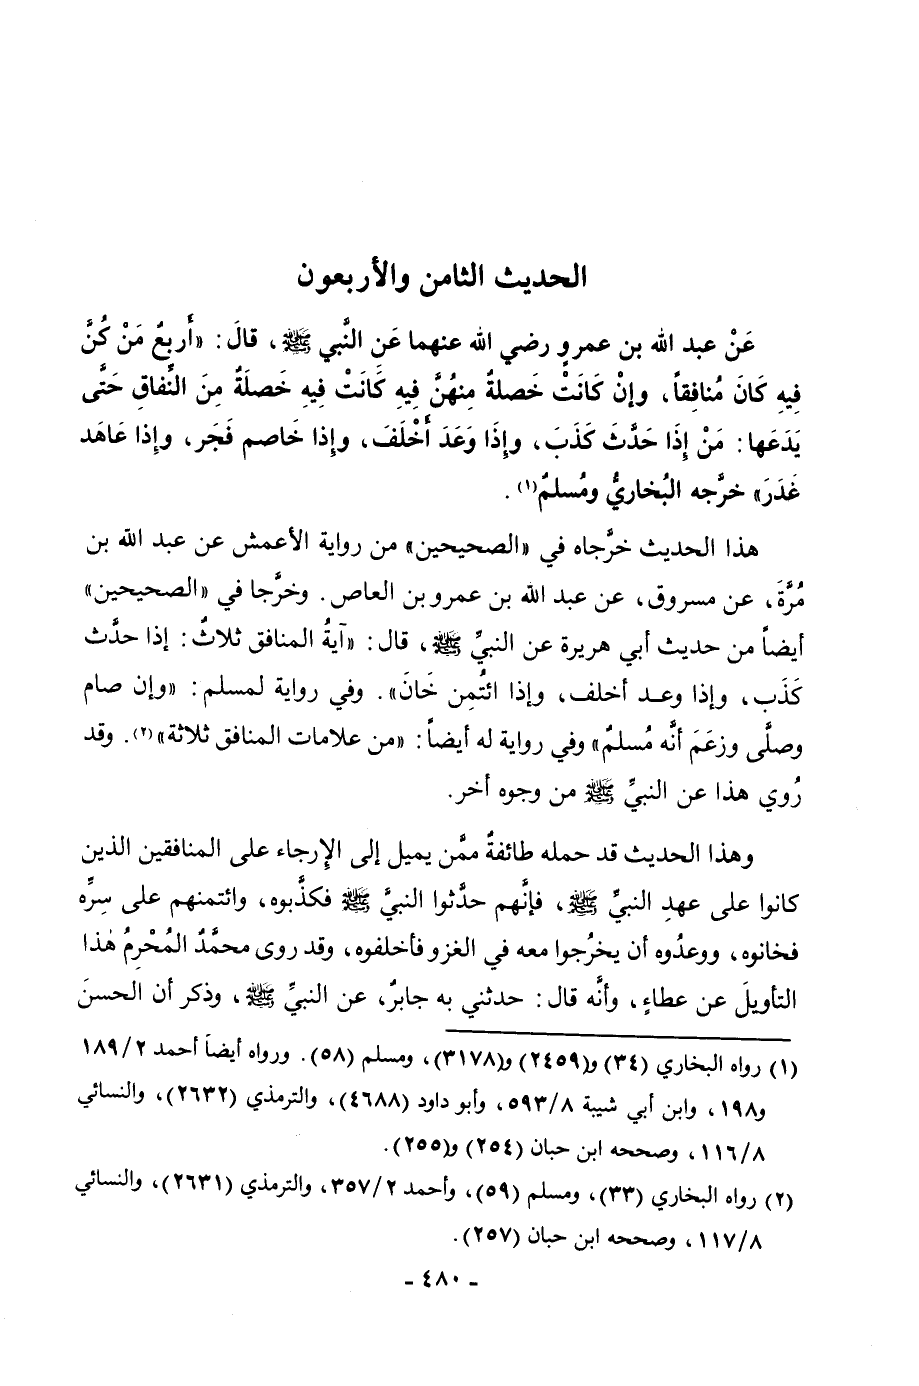 الحديث الثامن والأربعون
عَنْ عبد الله بن عمروٍ رضي الله عنهما عَن النَّبي ﷺ، قالَ: «أَربعٌ مَنْ كُنَّ
فيهِ كَانَ مُنافِقاً، وإنْ كَانَتْ خَصلةٌ مِنهُنَّ فِيهِ كَانَتْ فِيهِ خَصلَةٌ مِنَ النِّفاقِ حَتَّى
يَدَعَها: مَنْ إِذَا حَدَّثَ كَذَبَ، وإِذَا وَعَدَ أَخْلَفَ، وإِذا خَاصم فَجَر، وإِذا عَاهَد
غَدَرَ» خرَّجه البُخاريُّ ومُسلمٌ(١).
هذا الحديث خرَّجاه في «الصحيحين» من رواية الأعمش عن عبد الله بن
مُرَّةَ، عن مسروق، عن عبد الله بن عمرو بن العاص. وخرَّجا في «الصحيحين»
أيضاً من حديث أبي هريرة عن النبيِّ ﷺ، قال: «آيةُ المنافق ثلاثٌ: إذا حدَّث
كَذَب، وإذا وعد أخلف، وإذا ائتُمِن خَانَ». وفي رواية لمسلم: «وإن صام
وصلَّى وزعَمَ أنَّه مُسلمٌ» وفي رواية له أيضاً: «من علامات المنافق ثلاثة»(٢). وقد
رُوي هذا عن النبيِّ ﷺ من وجوه أخر.
وهذا الحديث قد حمله طائفةٌ ممَّن يميل إلى الإِرجاء على المنافقين الذين
كانوا على عهدِ النبيِّ ﷺ، فإنَّهم حدَّثوا النبيَّ ﷺ فكذَّبوه، وائتمنهم على سِرِّه
فخانوه، ووعدُوه أن يخرُجوا معه في الغزو فأخلفوه، وقد روى محمَّدٌ المُحْرِمُ هٰذا
التأويلَ عن عطاءٍ، وأنَّه قال: حدثني به جابرٌ، عن النبيِّ ﷺ، وذكر أن الحسنَ
(١) رواه البخاري (٣٤) و(٢٤٥٩) و(٣١٧٨)، ومسلم (٥٨). ورواه أيضاً أحمد ١٨٩/٢
و١٩٨، وابن أبي شيبة ٥٩٣/٨، وأبو داود (٤٦٨٨)، والترمذي (٢٦٣٢)، والنسائي
١١٦/٨، وصححه ابن حبان (٢٥٤) و(٢٥٥).
(٢) رواه البخاري (٣٣)، ومسلم (٥٩)، وأحمد ٣٥٧/٢، والترمذي (٢٦٣١)، والنسائي
١١٧/٨، وصححه ابن حبان (٢٥٧).
- ٤٨٠ -